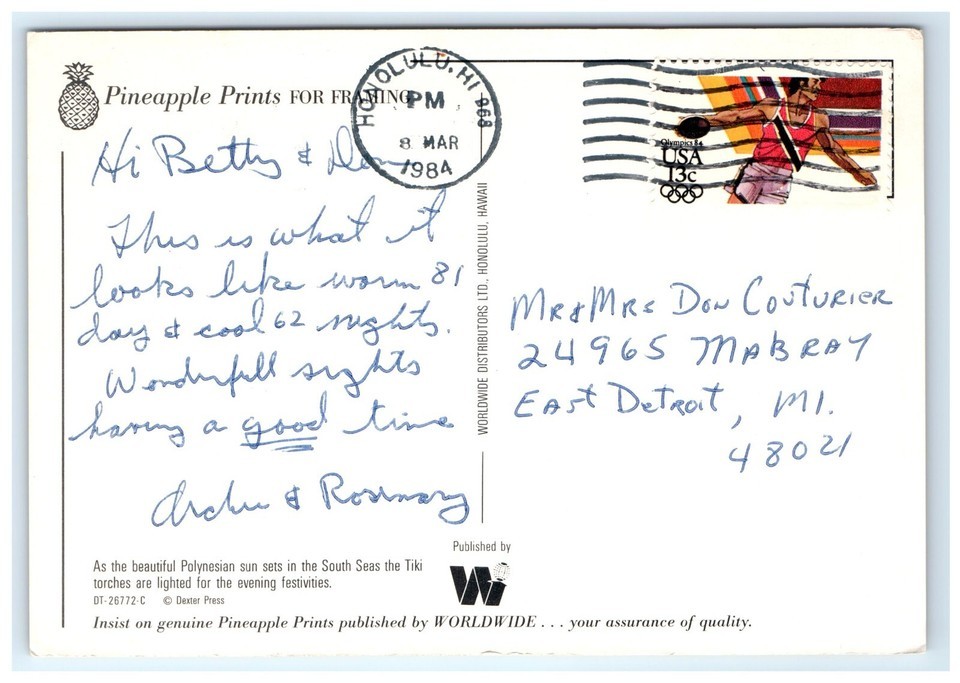 Pineapple Prints FOR FRAMING
HONOLULU, HI 968
PM
8 MAR
1984
Olympics 84
USA
13c
Hi Betty & Don
This is what it
looks like warm 81
day & cool 62 nights.
Wonderfull sights
having a good time
Archie & Rosemary
WORLDWIDE DISTRIBUTORS LTD., HONOLULU, HAWAII
Mr & Mrs Don Couturier
24965 MABRAY
East Detroit, MI.
48021
As the beautiful Polynesian sun sets in the South Seas the Tiki
torches are lighted for the evening festivities.
DT-26772-C © Dexter Press
Published by
Wi
Insist on genuine Pineapple Prints published by WORLDWIDE . . . your assurance of quality.